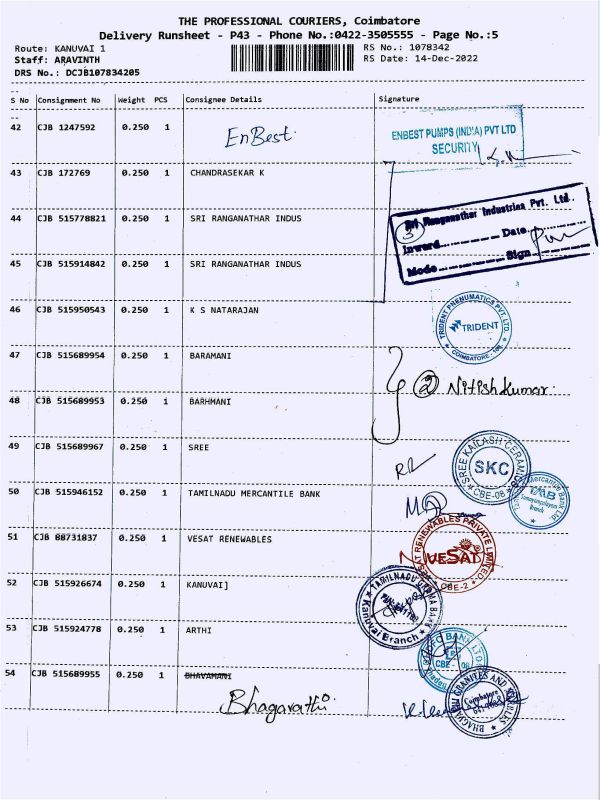 THE PROFESSIONAL COURIERS, Coimbatore
Delivery Runsheet - P43 - Phone No.:0422-3505555 - Page No.:5
Route: KANUVAI 1
RS No.: 1078342
Staff: ARAVINTH
RS Date: 14-Dec-2022
DRS No.: DCJB107834205
S No Consignment No Weight PCS Consignee Details Signature
42 CJB 1247592 0.250 1 EnBest.
ENBEST PUMPS (INDIA) PVT LTD
SECURITY
43 CJB 172769 0.250 1 CHANDRASEKAR K
44 CJB 515778821 0.250 1 SRI RANGANATHAR INDUS
Sri Ranganathar Industries Pvt. Ltd.
3
Inward Date
Mode Sign
45 CJB 515914842 0.250 1 SRI RANGANATHAR INDUS
46 CJB 515950543 0.250 1 K S NATARAJAN
TRIDENT PNEUMATICS PVT. LTD.
TRIDENT
COIMBATORE
47 CJB 515689954 0.250 1 BARAMANI
2 Nitishkumar.
48 CJB 515689953 0.250 1 BARHMANI
49 CJB 515689967 0.250 1 SREE
SREE KAILASH CERAMICS
SKC
CBE-08
50 CJB 515946152 0.250 1 TAMILNADU MERCANTILE BANK
Mercantile Bank Ltd
TMB
Branch
51 CJB 88731837 0.250 1 VESAT RENEWABLES
VESAT RENEWABLES PRIVATE LIMITED
VESAT
CBE-2
52 CJB 515926674 0.250 1 KANUVAI]
TAMILNADU GRAMA BANK
Kanuvai Branch
53 CJB 515924778 0.250 1 ARTHI
BANK
CBE - 08
54 CJB 515689955 0.250 1 BHAVAMANI
Bhagavathi
BHAGVATHI GRANITES AND MARBLES
Coimbatore